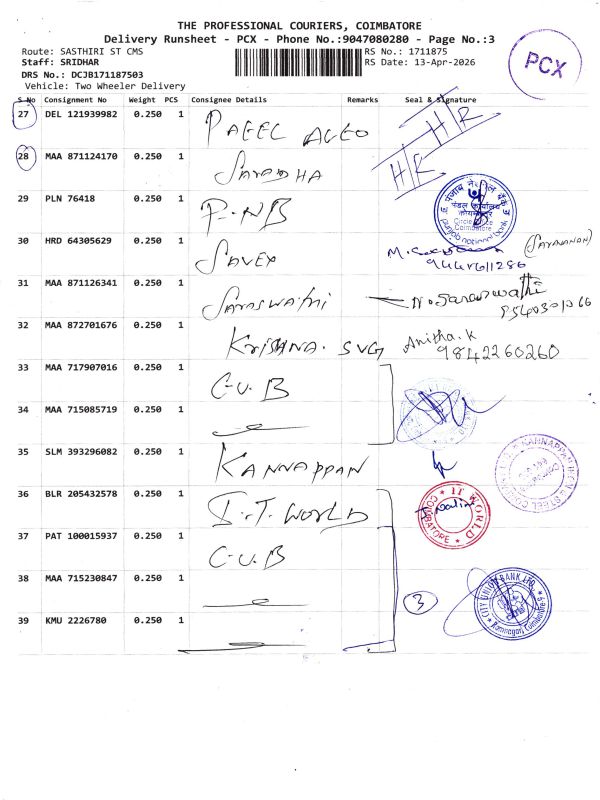 THE PROFESSIONAL COURIERS, COIMBATORE
Delivery Runsheet - PCX - Phone No.:9047080280 - Page No.:3
Route: SASTHIRI ST CMS
RS No.: 1711875
Staff: SRIDHAR
RS Date: 13-Apr-2026
DRS No.: DCJB171187503
Vehicle: Two Wheeler Delivery
PCX
S No Consignment No Weight PCS Consignee Details Remarks Seal & Signature
27 DEL 121939982 0.250 1
H/R H/R
28 MAA 871124170 0.250 1 SARADHA
29 PLN 76418 0.250 1 P.NB
punjab national bank
30 HRD 64305629 0.250 1 SAVEX
(SARAVANAN)
31 MAA 871126341 0.250 1 SARASWATHI N.Saraswathi
32 MAA 872701676 0.250 1 KRISHNA. SVG Anitha.K
9842260260
33 MAA 717907016 0.250 1 C.U.B
34 MAA 715085719 0.250 1
35 SLM 393296082 0.250 1 KANNAPPAN
36 BLR 205432578 0.250 1 I.T. WORLD
IT WORLD
COIMBATORE
37 PAT 100015937 0.250 1 C.U.B
38 MAA 715230847 0.250 1 3
CITY UNION BANK LTD
39 KMU 2226780 0.250 1